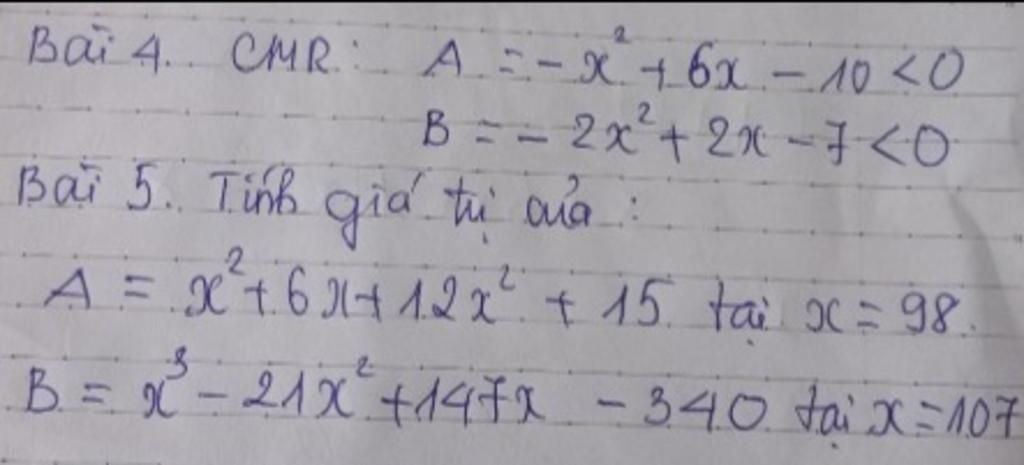 Bài 4. CMR: A = -x² + 6x - 10 < 0
B = - 2x² + 2x - 7 < 0
Bài 5. Tính giá trị của :
A = x² + 6x + 12x² + 15 tại x = 98.
B = x³ - 21x² + 147x - 340 tại x = 107